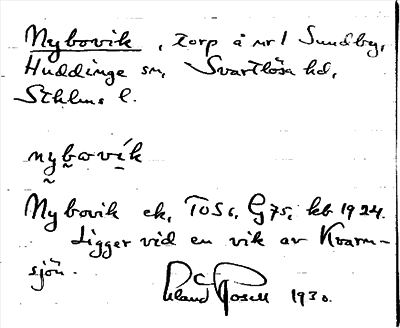 Nybovik, torp å nr 1 Sundby,
Huddinge sn, Svartlösa hd,
Sthlms l.
nybovík
Nybovik ek, TOS6, G75, kb 1924.
Ligger vid en vik av Kvarn-
sjön.
1930.